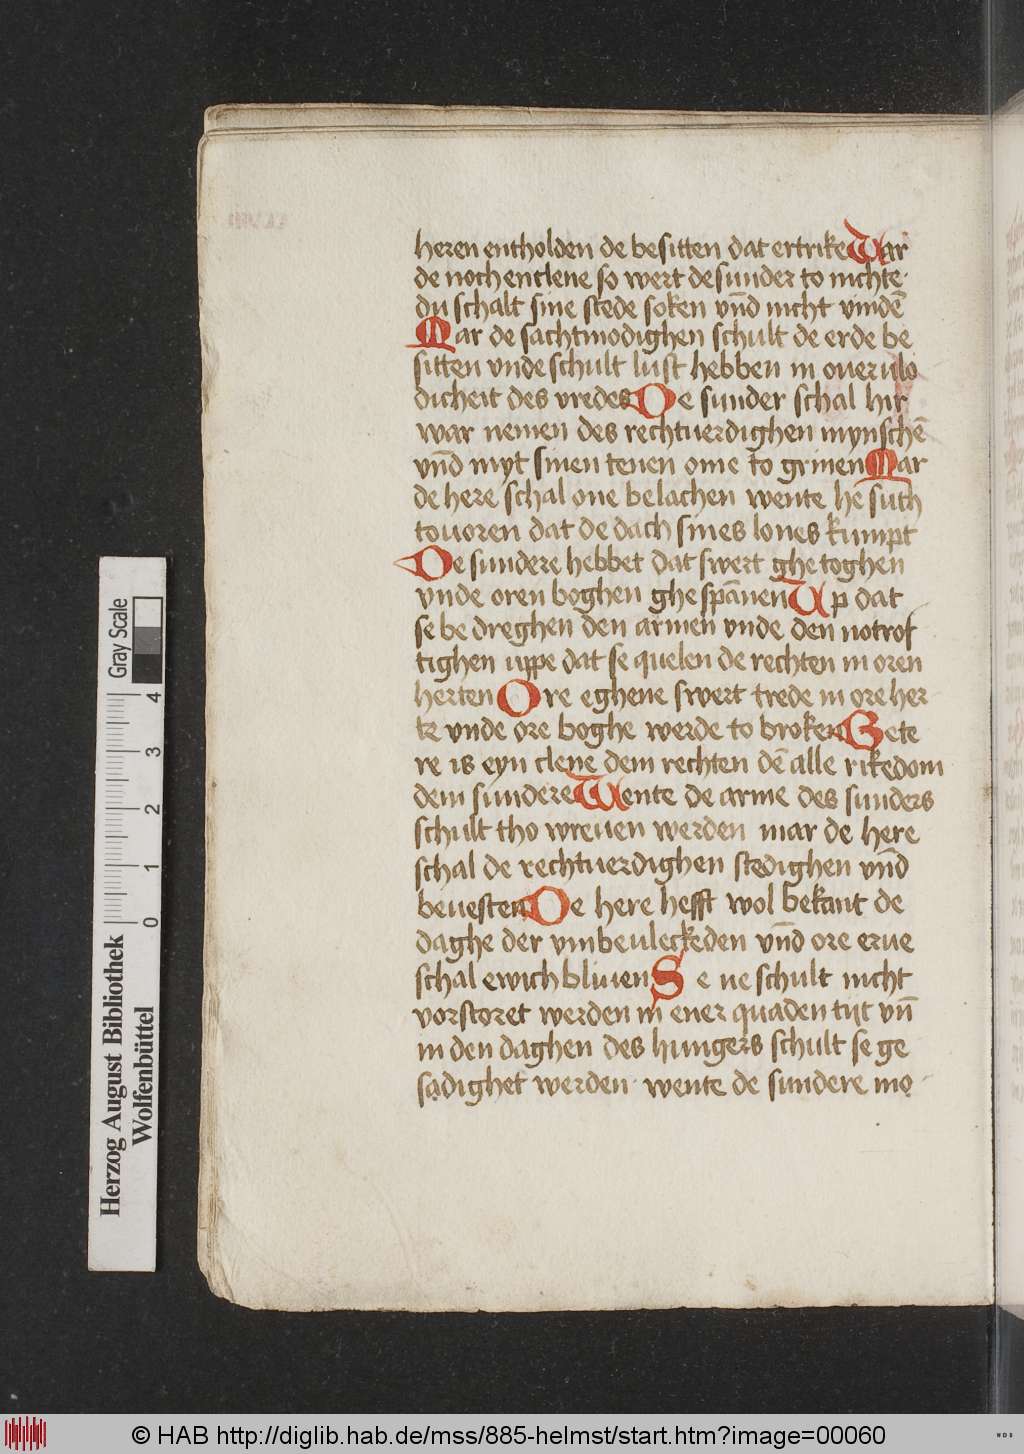 heren entholden de besitten dat ertrike War
de noch en clene so wert de sunder to nichte·
du schalt sine stede soken vn̄d nicht vindē
Mar de sachtmodighen schult de erde be
sitten vnde schult lust hebben in ouerulo
dicheit des vredes De sunder schal hir
war nemen des rechtuerdighen mynschē
vn̄d myt sinen tenen ome to grinen Mar
de here schal one belachen wente he suth
touoren dat de dach sines lones kumpt
De sundere hebbet dat swert ghe toghen
vnde oren boghen ghe spānen Up dat
se be dreghen den armen vnde den notrof
tighen uppe dat se quelen de rechten in oren
herten Ore eghene swert trede in ore her
te vnde ore boghe werde to broken Bete
re is eyn clene dem rechten dē alle rikedom
dem sundere Wente de arme des sunders
schult tho wreuen werden mar de here
schal de rechtuerdighen stedighen vn̄d
beuesten De here hefft wol bekant de
daghe der vmbeuleckeden vn̄d ore erue
schal ewich bliuen Se ne schult nicht
vorstoret werden in ener quaden tijt vn̄
in den daghen des hungers schult se ge
sadighet werden· wente de sundere mo
Herzog August Bibliothek
Wolfenbüttel
0 1 2 3 4
Gray Scale
© HAB http://diglib.hab.de/mss/885-helmst/start.htm?image=00060